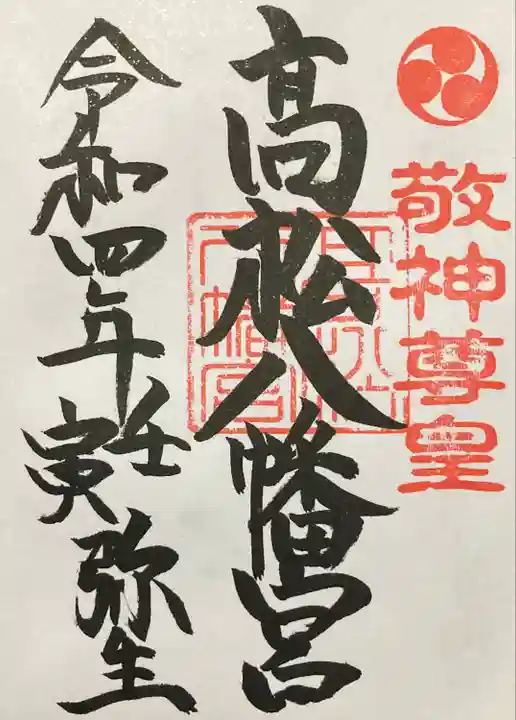 敬神尊皇
髙松八幡宮
令和四年壬寅弥生